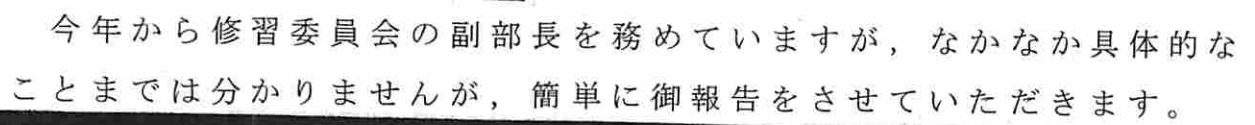 今年から修習委員会の副部長を務めていますが，なかなか具体的な
ことまでは分かりませんが，簡単に御報告をさせていただきます。